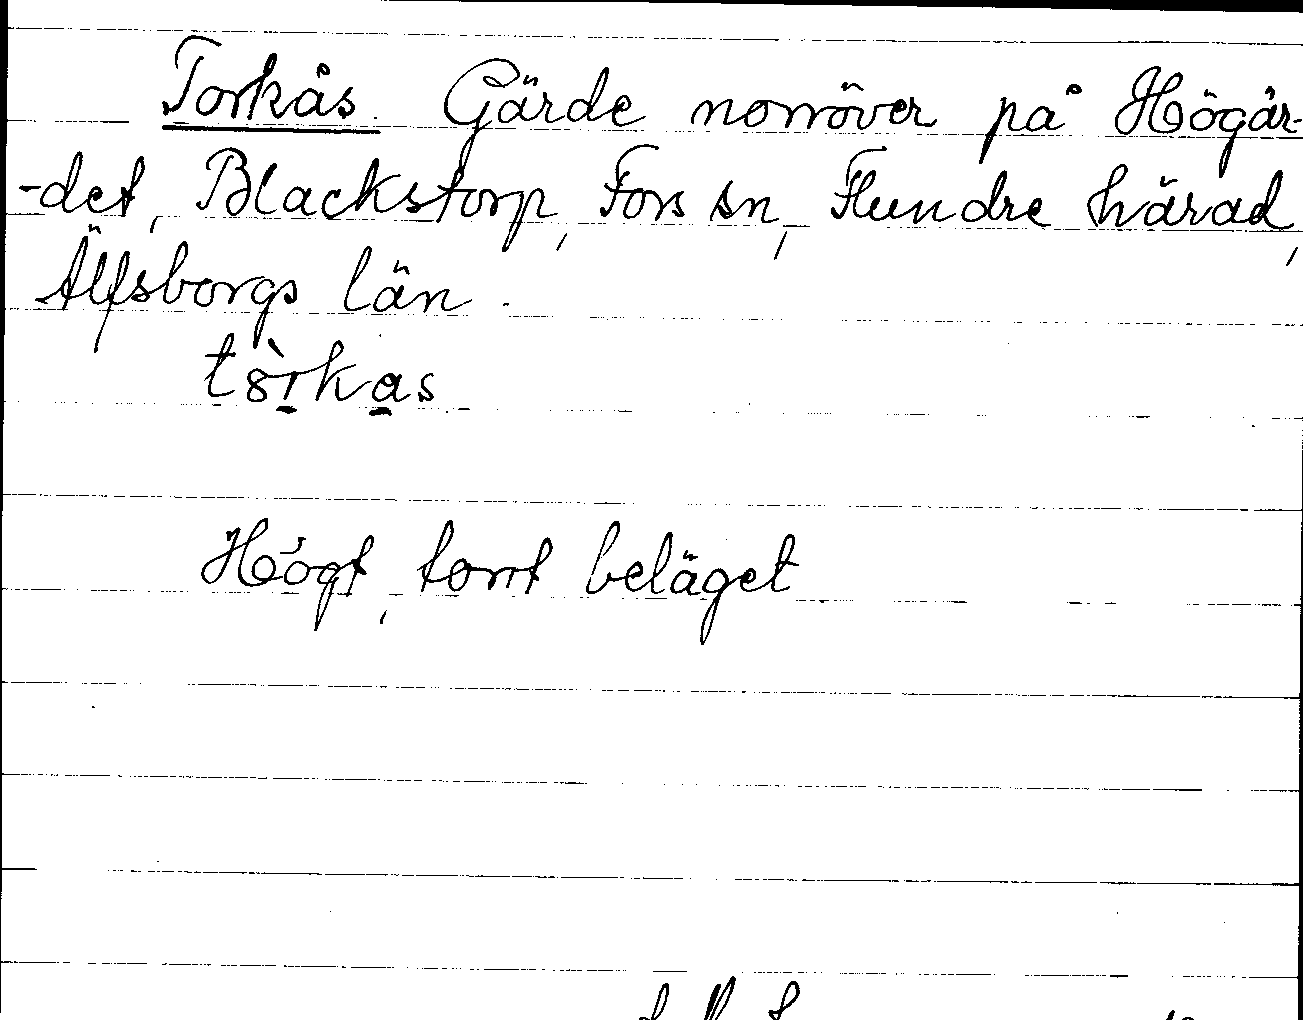 Torkås. Gärde norröver på Högär-
-det, Blackstorp, Fors sn, Flundre härad,
Älfsborgs län.
Högt, torrt beläget